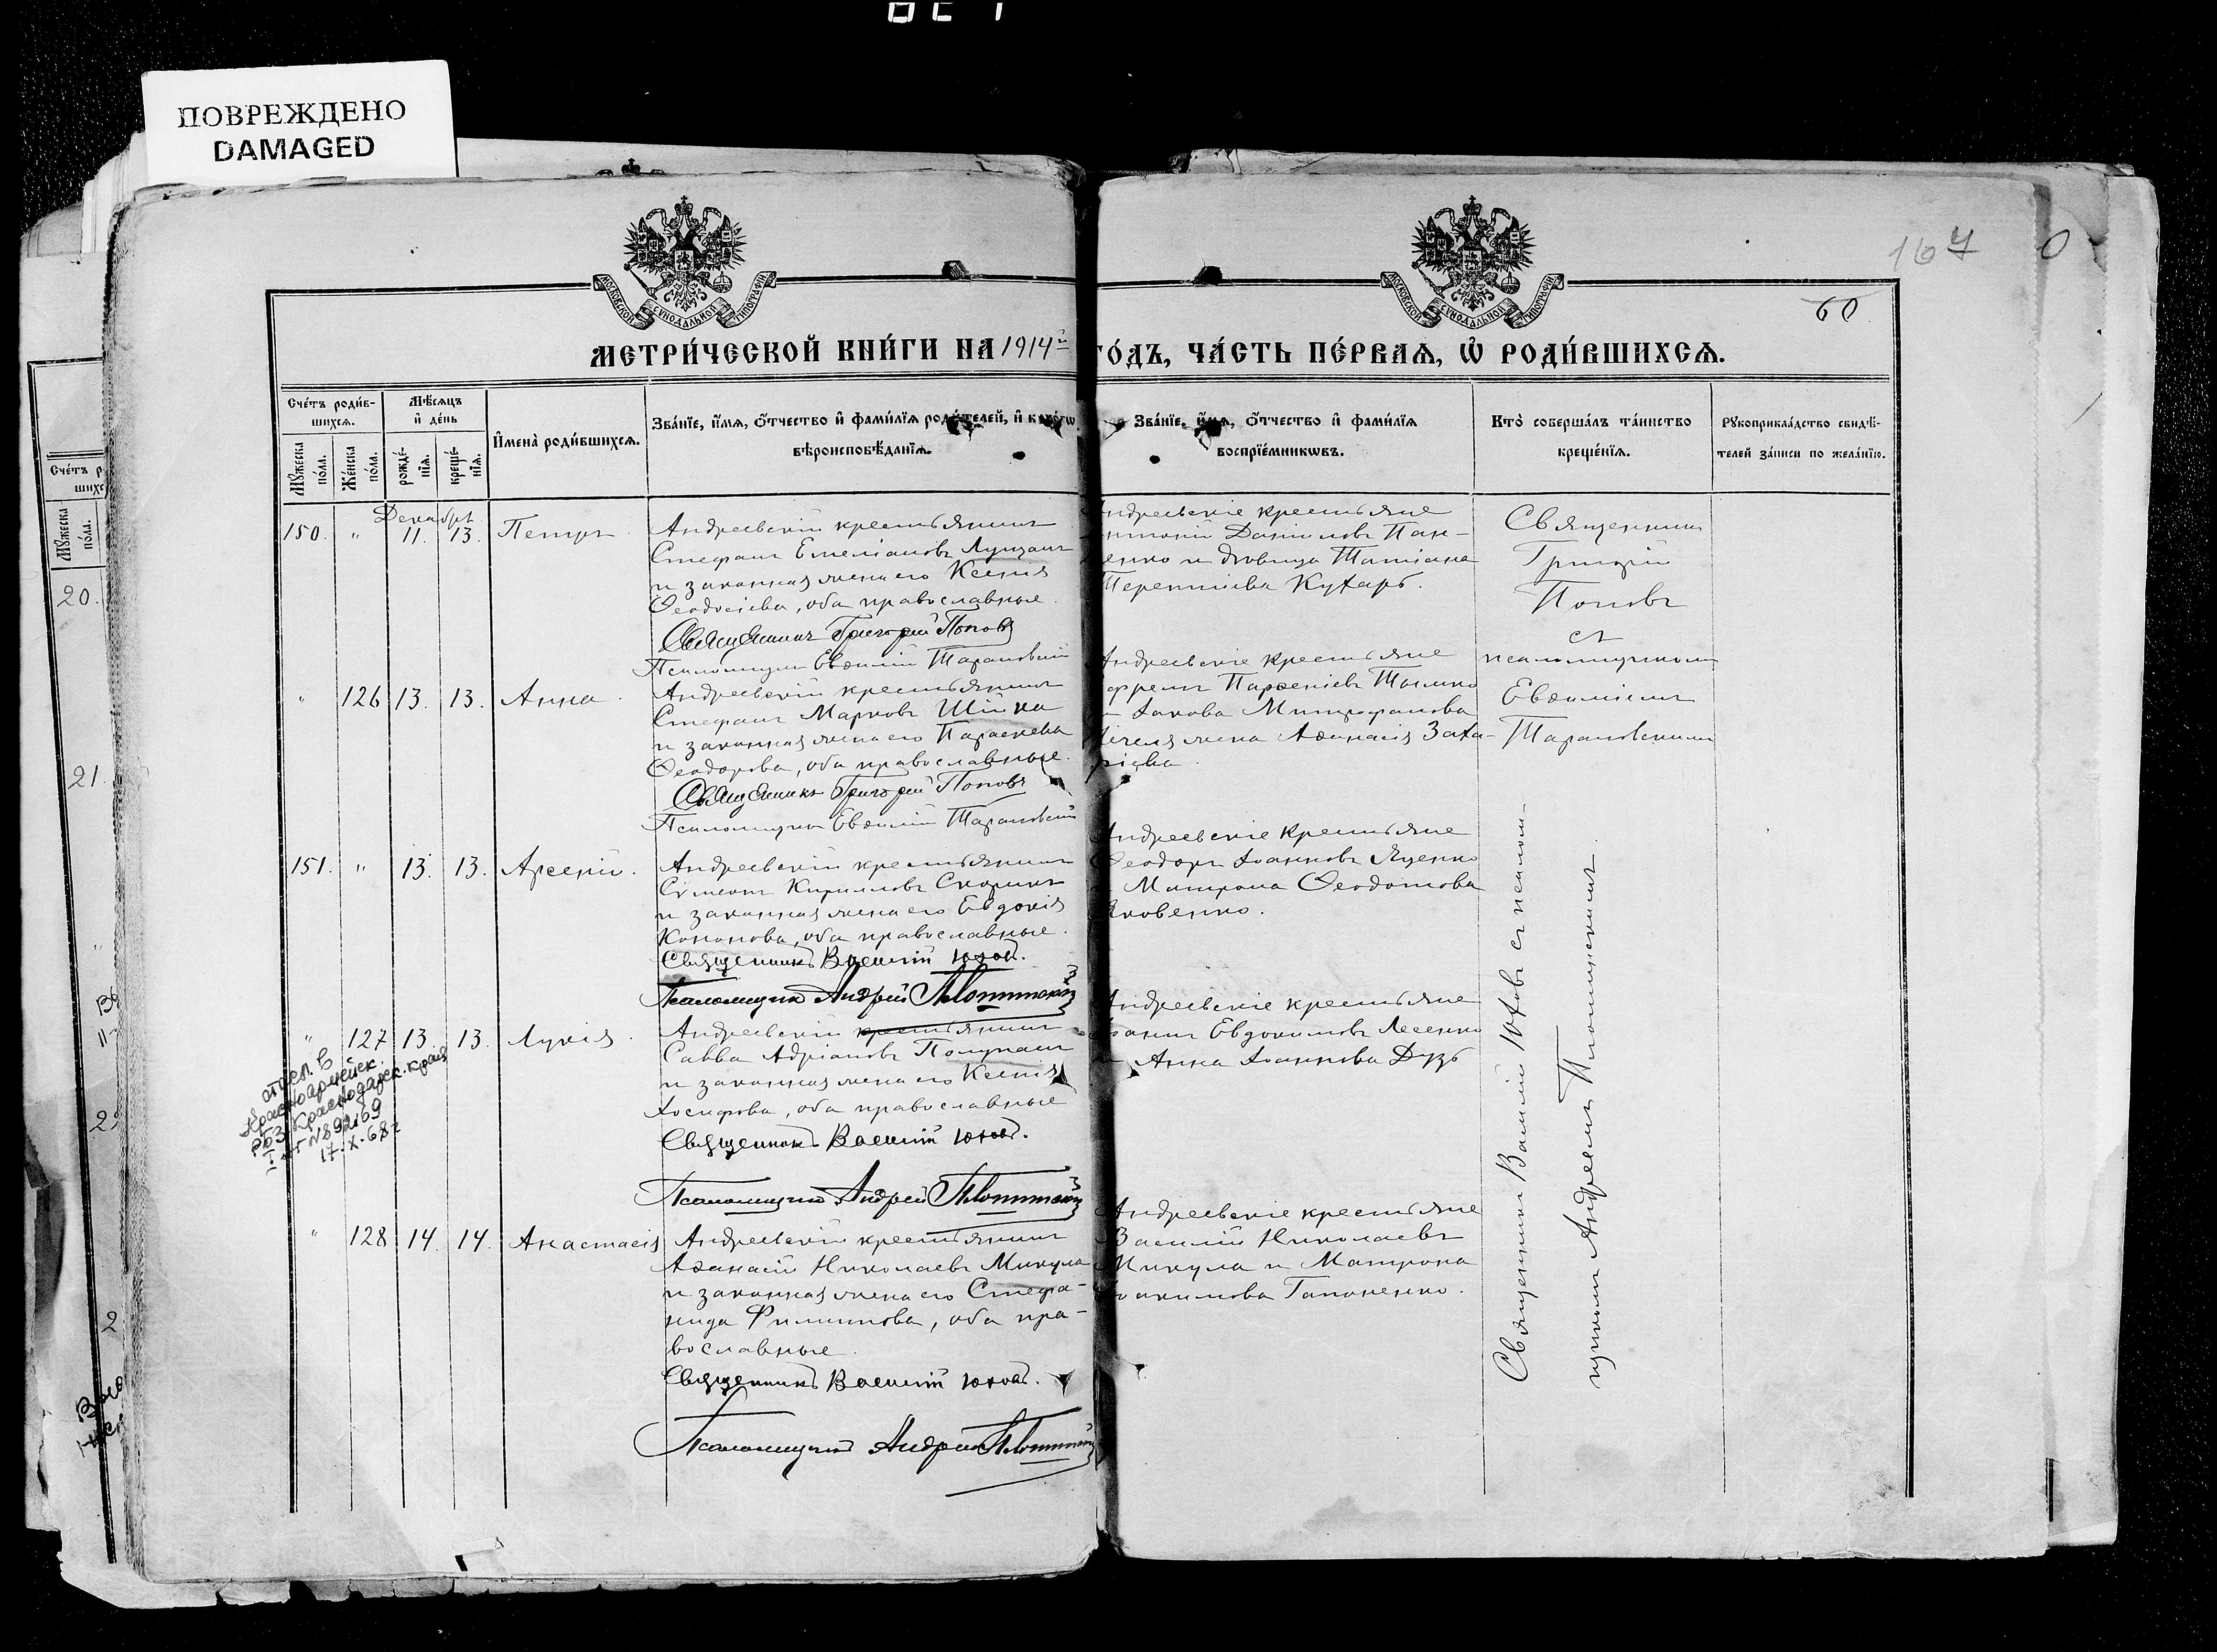 ПОВРЕЖДЕНО
DAMAGED
167
60
МЕТРИ́ЧЕСКОЙ КНИ́ГИ НА 1914й ГО́ДЪ, ЧА́СТЬ ПЕ́РВАЯ, Ѡ҆ РОДИ́ВШИХСЯ.
Сче́тъ роди́в-
шихся.
Мѣ́сяцъ
и҆ де́нь
Мꙋ́жеска по́ла.
Же́нска по́ла.
рожде́-нїя.
креще́-нїя.
И҆мена̀ роди́вшихся.
Зва́нїе, и҆́мя, ѻ҆́тчество и҆ фами́лїя роди́телей, и҆ како́гѡ
вѣроисповѣ́данїя.
Зва́нїе, и҆́мя, ѻ҆́тчество и҆ фами́лїя
воспрїе́мникѡвъ.
Кто̀ соверша́лъ та́инство
креще́нїя.
Рꙋкоприкла́дство свидѣ́-
телей за́писи по жела́нїю.
Декабрь
150. " 11. 13. Петръ
Андреевскій крестьянинъ
Стефанъ Емеліановъ Луцанъ
и законная жена его Ксенія
Ѳеодосіева, оба православные.
Священникъ Григорий Поповъ
Псаломщикъ Евѳимій Тарановскій
Андреевскіе крестьяне
Даніиловъ Пан-
енко и дѣвица Татіана
Терентіева Кухарь.
Священникъ
Григорій
Поповъ
съ
псаломщикомъ
Евѳиміемъ
Тарановскимъ
" 126 13. 13. Анна.
Андреевскій крестьянинъ
Стефанъ Марковъ Шійка
и законная жена его Параскева
Ѳеодорова, оба православные.
Священникъ Григорий Поповъ
Псаломщикъ Евѳимій Тарановскій
Андреевскіе крестьяне
Парѳеніевъ
Іакова Митрофанова
жена Аѳанасія Заха-
ріева.
151. " 13. 13. Арсеній.
Андреевскій крестьянинъ
Сѵмеонъ Кирилловъ Скорикъ
и законная жена его Евдокія
Кононова, оба православные.
Священникъ Василий Юховъ.
Псаломщикъ Андрей
Андреевскіе крестьяне
Ѳеодоръ Іоанновъ Яценко
Матрона Ѳеодотова
Яковенко.
" 127 13. 13. Лукія.
Андреевскій крестьянинъ
Савва Адріановъ Полупанъ
и законная жена его Ксенія
Іосифова, оба православные
Священникъ Василий Юховъ.
Псаломщикъ Андрей
Андреевскіе крестьяне
Іоаннъ Евдокимовъ Лесенко
Анна Іоаннова Дузь
отосл. в
Красноармейск.
РБЗ Краснодарск. края
I-АГ №892169
17-X-68г
" 128 14. 14. Анастасія
Андреевскій крестьянинъ
Аѳанасій Николаевъ Микула
и законная жена его Стефа-
нида Филиппова, оба пра-
вославные.
Священникъ Василий Юховъ.
Псаломщикъ Андрей
Андреевскіе крестьяне
Василій Николаевъ
Микула и Матрона
Іоакимова Гапоненко.
Священникъ Василій Юховъ съ псалом-
щикомъ Андреемъ
Сче́тъ р
шихс
Мꙋ́жеска по́ла.
20.
21.